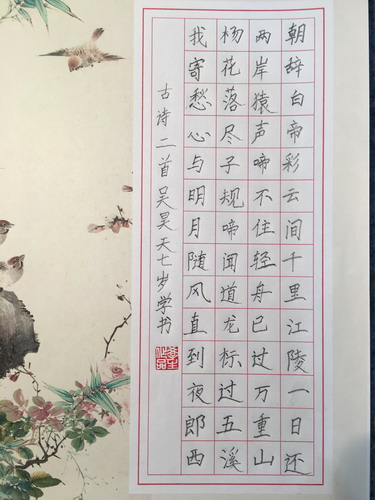 朝辞白帝彩云间千里江陵一日还
两岸猿声啼不住轻舟已过万重山
杨花落尽子规啼闻道龙标过五溪
我寄愁心与明月随风直到夜郎西
古诗二首吴昊天七岁学书